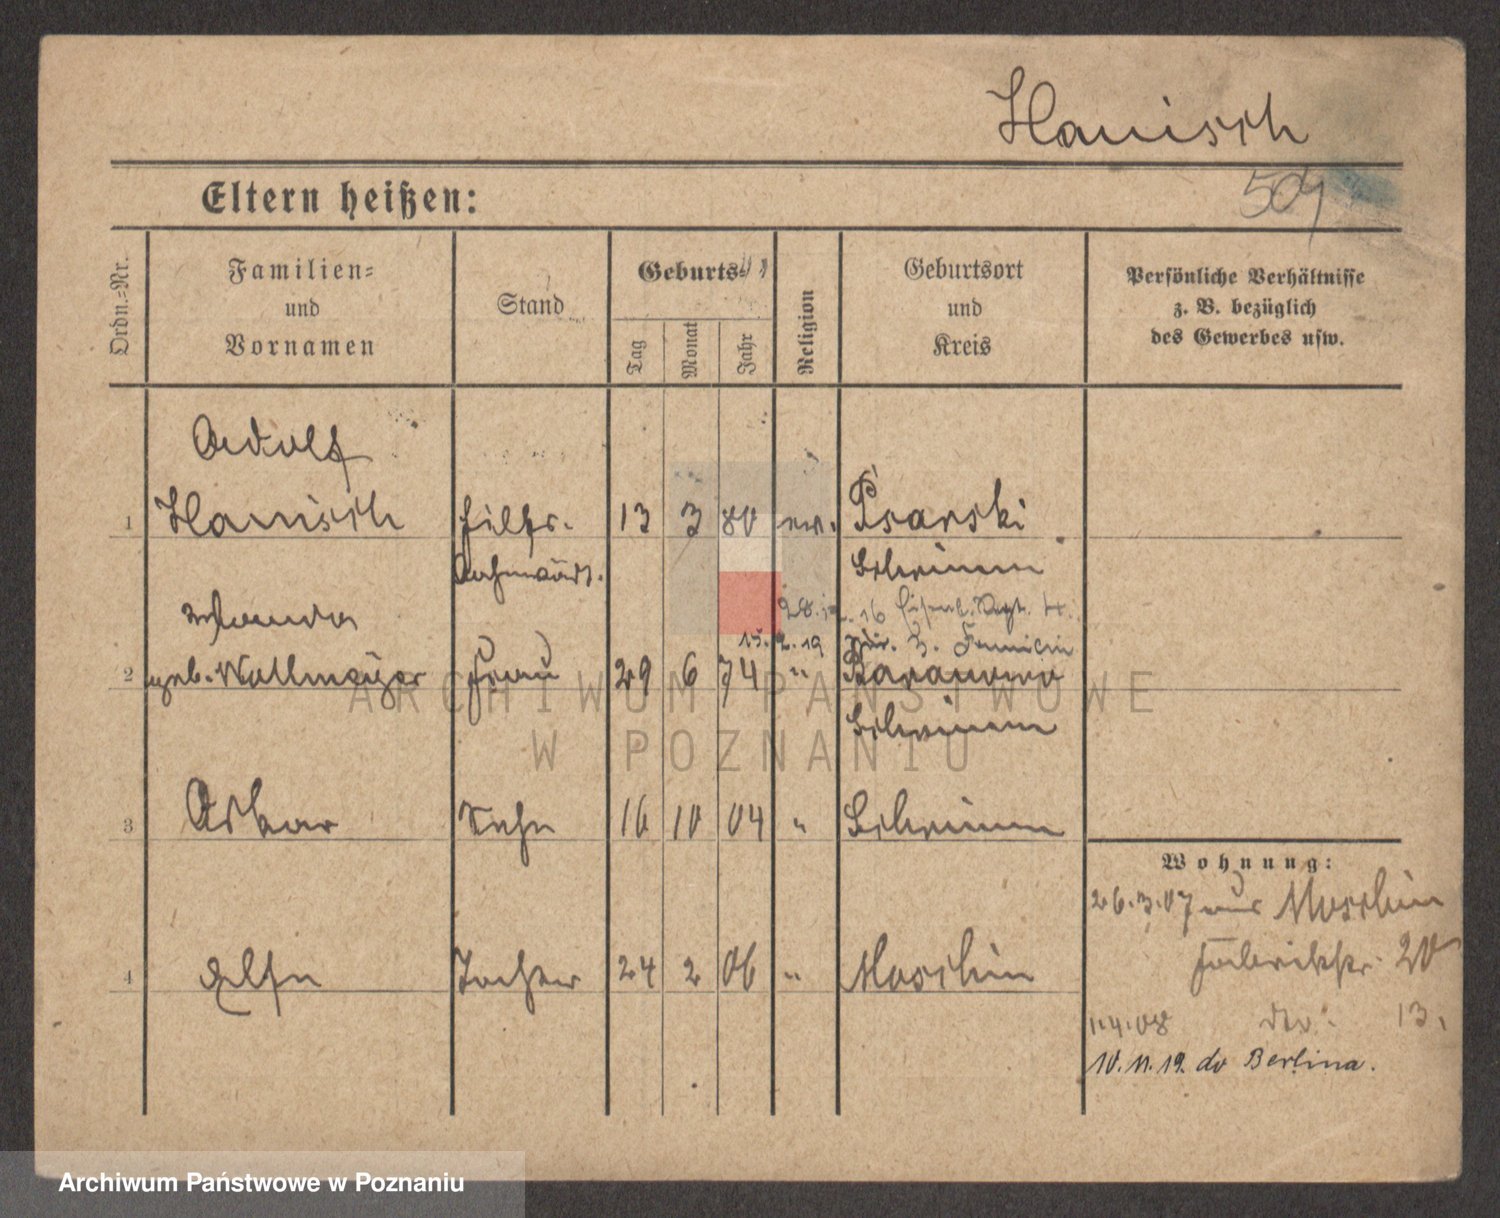 Hanisch
Eltern heißen:
504
Ordn.=Nr.
Familien=
und
Vornamen
Stand
Geburts=
Tag
Monat
Jahr
Religion
Geburtsort
und
Kreis
Persönliche Verhältnisse
z. B. bezüglich
des Gewerbes usw.
Adolf
1 Hanisch Hilfs- 13 3 80 ev. Psarski
Bahnwärt. Schrimm
Wanda 28. 16 Eisenb.
15.2.19 z. Familie
2 geb. Wallmeyer Frau 29 6 74 " Baranowo
Schrimm
3 Oskar Sohn 16 10 04 " Schrimm
4 Else Tochter 24 2 06 " Moschin
Wohnung:
26.3.07 aus Moschin
Fabrikstr. 20
1.4.08 do. 13.
10.11.19. do Berlina.
ARCHIWUM PAŃSTWOWE
W POZNANIU
Archiwum Państwowe w Poznaniu